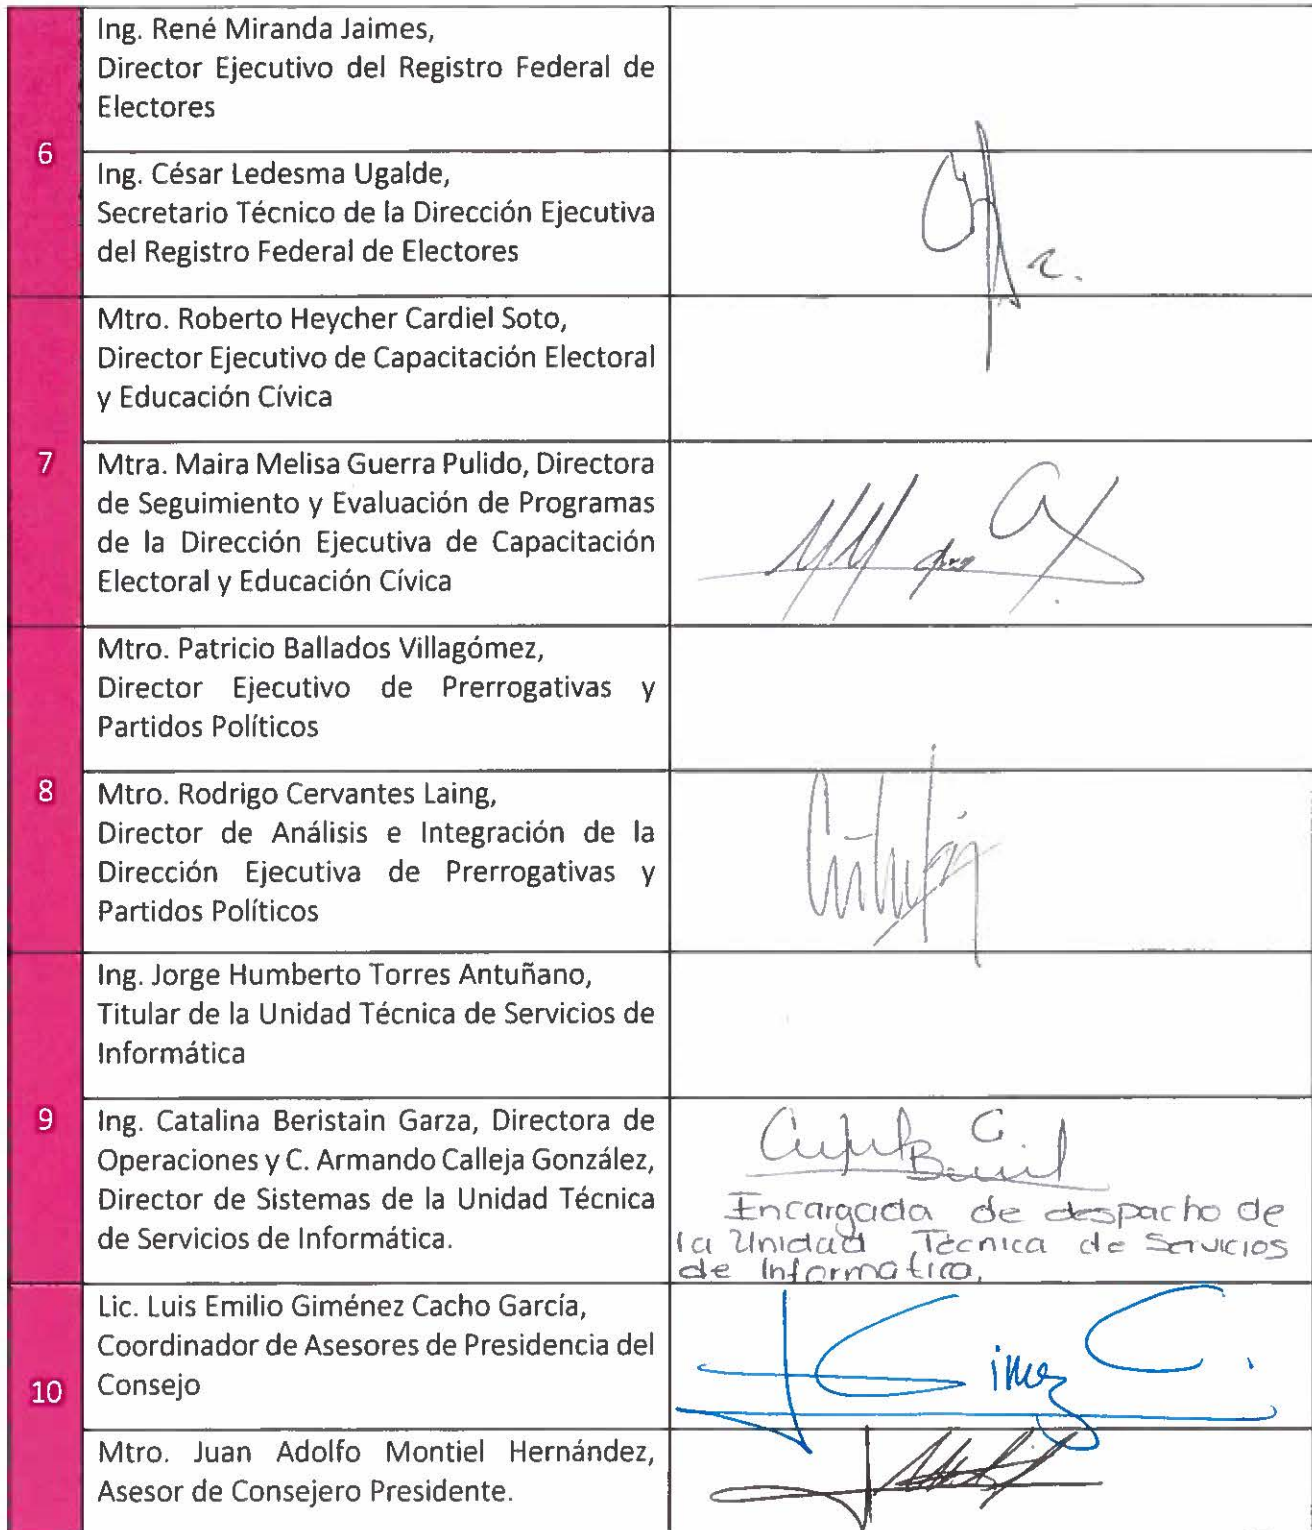 6
Ing. René Miranda Jaimes,
Director Ejecutivo del Registro Federal de
Electores
Ing. César Ledesma Ugalde,
Secretario Técnico de la Dirección Ejecutiva
del Registro Federal de Electores
7
Mtro. Roberto Heycher Cardiel Soto,
Director Ejecutivo de Capacitación Electoral
y Educación Cívica
Mtra. Maira Melisa Guerra Pulido, Directora
de Seguimiento y Evaluación de Programas
de la Dirección Ejecutiva de Capacitación
Electoral y Educación Cívica
8
Mtro. Patricio Ballados Villagómez,
Director Ejecutivo de Prerrogativas y
Partidos Políticos
Mtro. Rodrigo Cervantes Laing,
Director de Análisis e Integración de la
Dirección Ejecutiva de Prerrogativas y
Partidos Políticos
9
Ing. Jorge Humberto Torres Antuñano,
Titular de la Unidad Técnica de Servicios de
Informática
Ing. Catalina Beristain Garza, Directora de
Operaciones y C. Armando Calleja González,
Director de Sistemas de la Unidad Técnica
de Servicios de Informática.
Encargada de despacho de
la Unidad Técnica de Servicios
de Informática,
10
Lic. Luis Emilio Giménez Cacho García,
Coordinador de Asesores de Presidencia del
Consejo
Mtro. Juan Adolfo Montiel Hernández,
Asesor de Consejero Presidente.